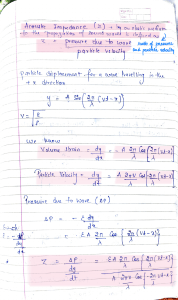 Acoustic Impedance (Z) →
to the propagation of sound wave is defined as
Z = pressure due to wave
particle velocity
ratio of pressure
and particle velocity
particle displacement for a wave travelling in the
+x direction
y = A Sin (2π/λ (vt-x))
V = √(E/ρ)
we know
Volume Strain = dy/dx = -A 2π/λ Cos (2π/λ (vt-x))
Particle Velocity = dy/dt = A 2πv/λ Cos (2π/λ (vt-x))
Pressure due to wave (ΔP)
ΔP = -E dy/dx
= EA 2π/λ Cos (2π/λ (vt-x))
Z = ΔP / (dy/dt) = EA 2π/λ Cos (2π/λ (vt-x)) / A 2πv/λ Cos 2π/λ (vt-x)